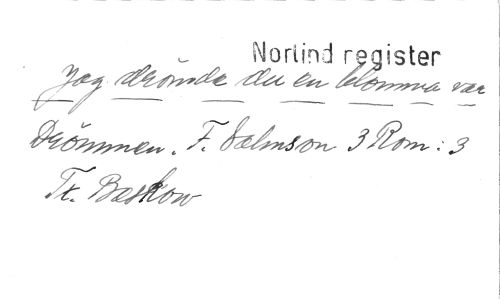 Norlind register
Jag drömde du en blomma var
Drömmen. F. Salmson 3 Rom: 3
Tx. Baskow